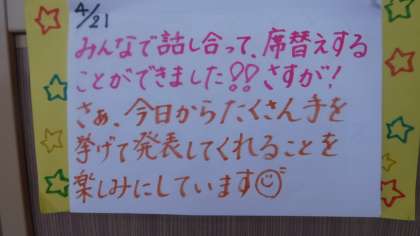 4/21
みんなで話し合って、席替えする
ことができました!!さすが!
さぁ、今日からたくさん手を
挙げて発表してくれることを
楽しみにしています